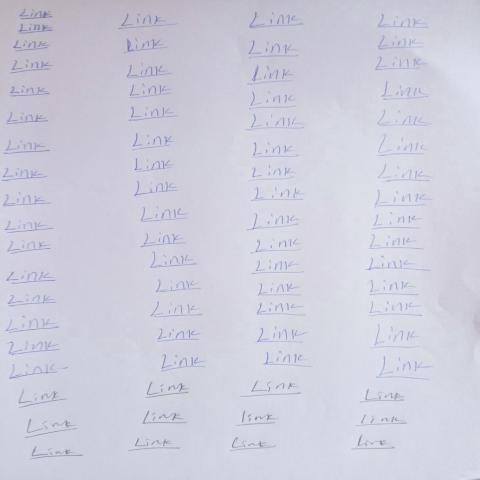 Link
Link Link Link Link
Link Link Link Link
Link Link Link Link
Link Link Link Link
Link Link Link Link
Link Link Link Link
Link Link Link Link
Link Link Link Link
Link Link Link Link
Link Link Link Link
Link Link Link Link
Link Link Link Link
Link Link Link Link
Link Link Link Link
Link Link Link Link
Link Link Link Link
Link Link Link Link
Link Link Link Link